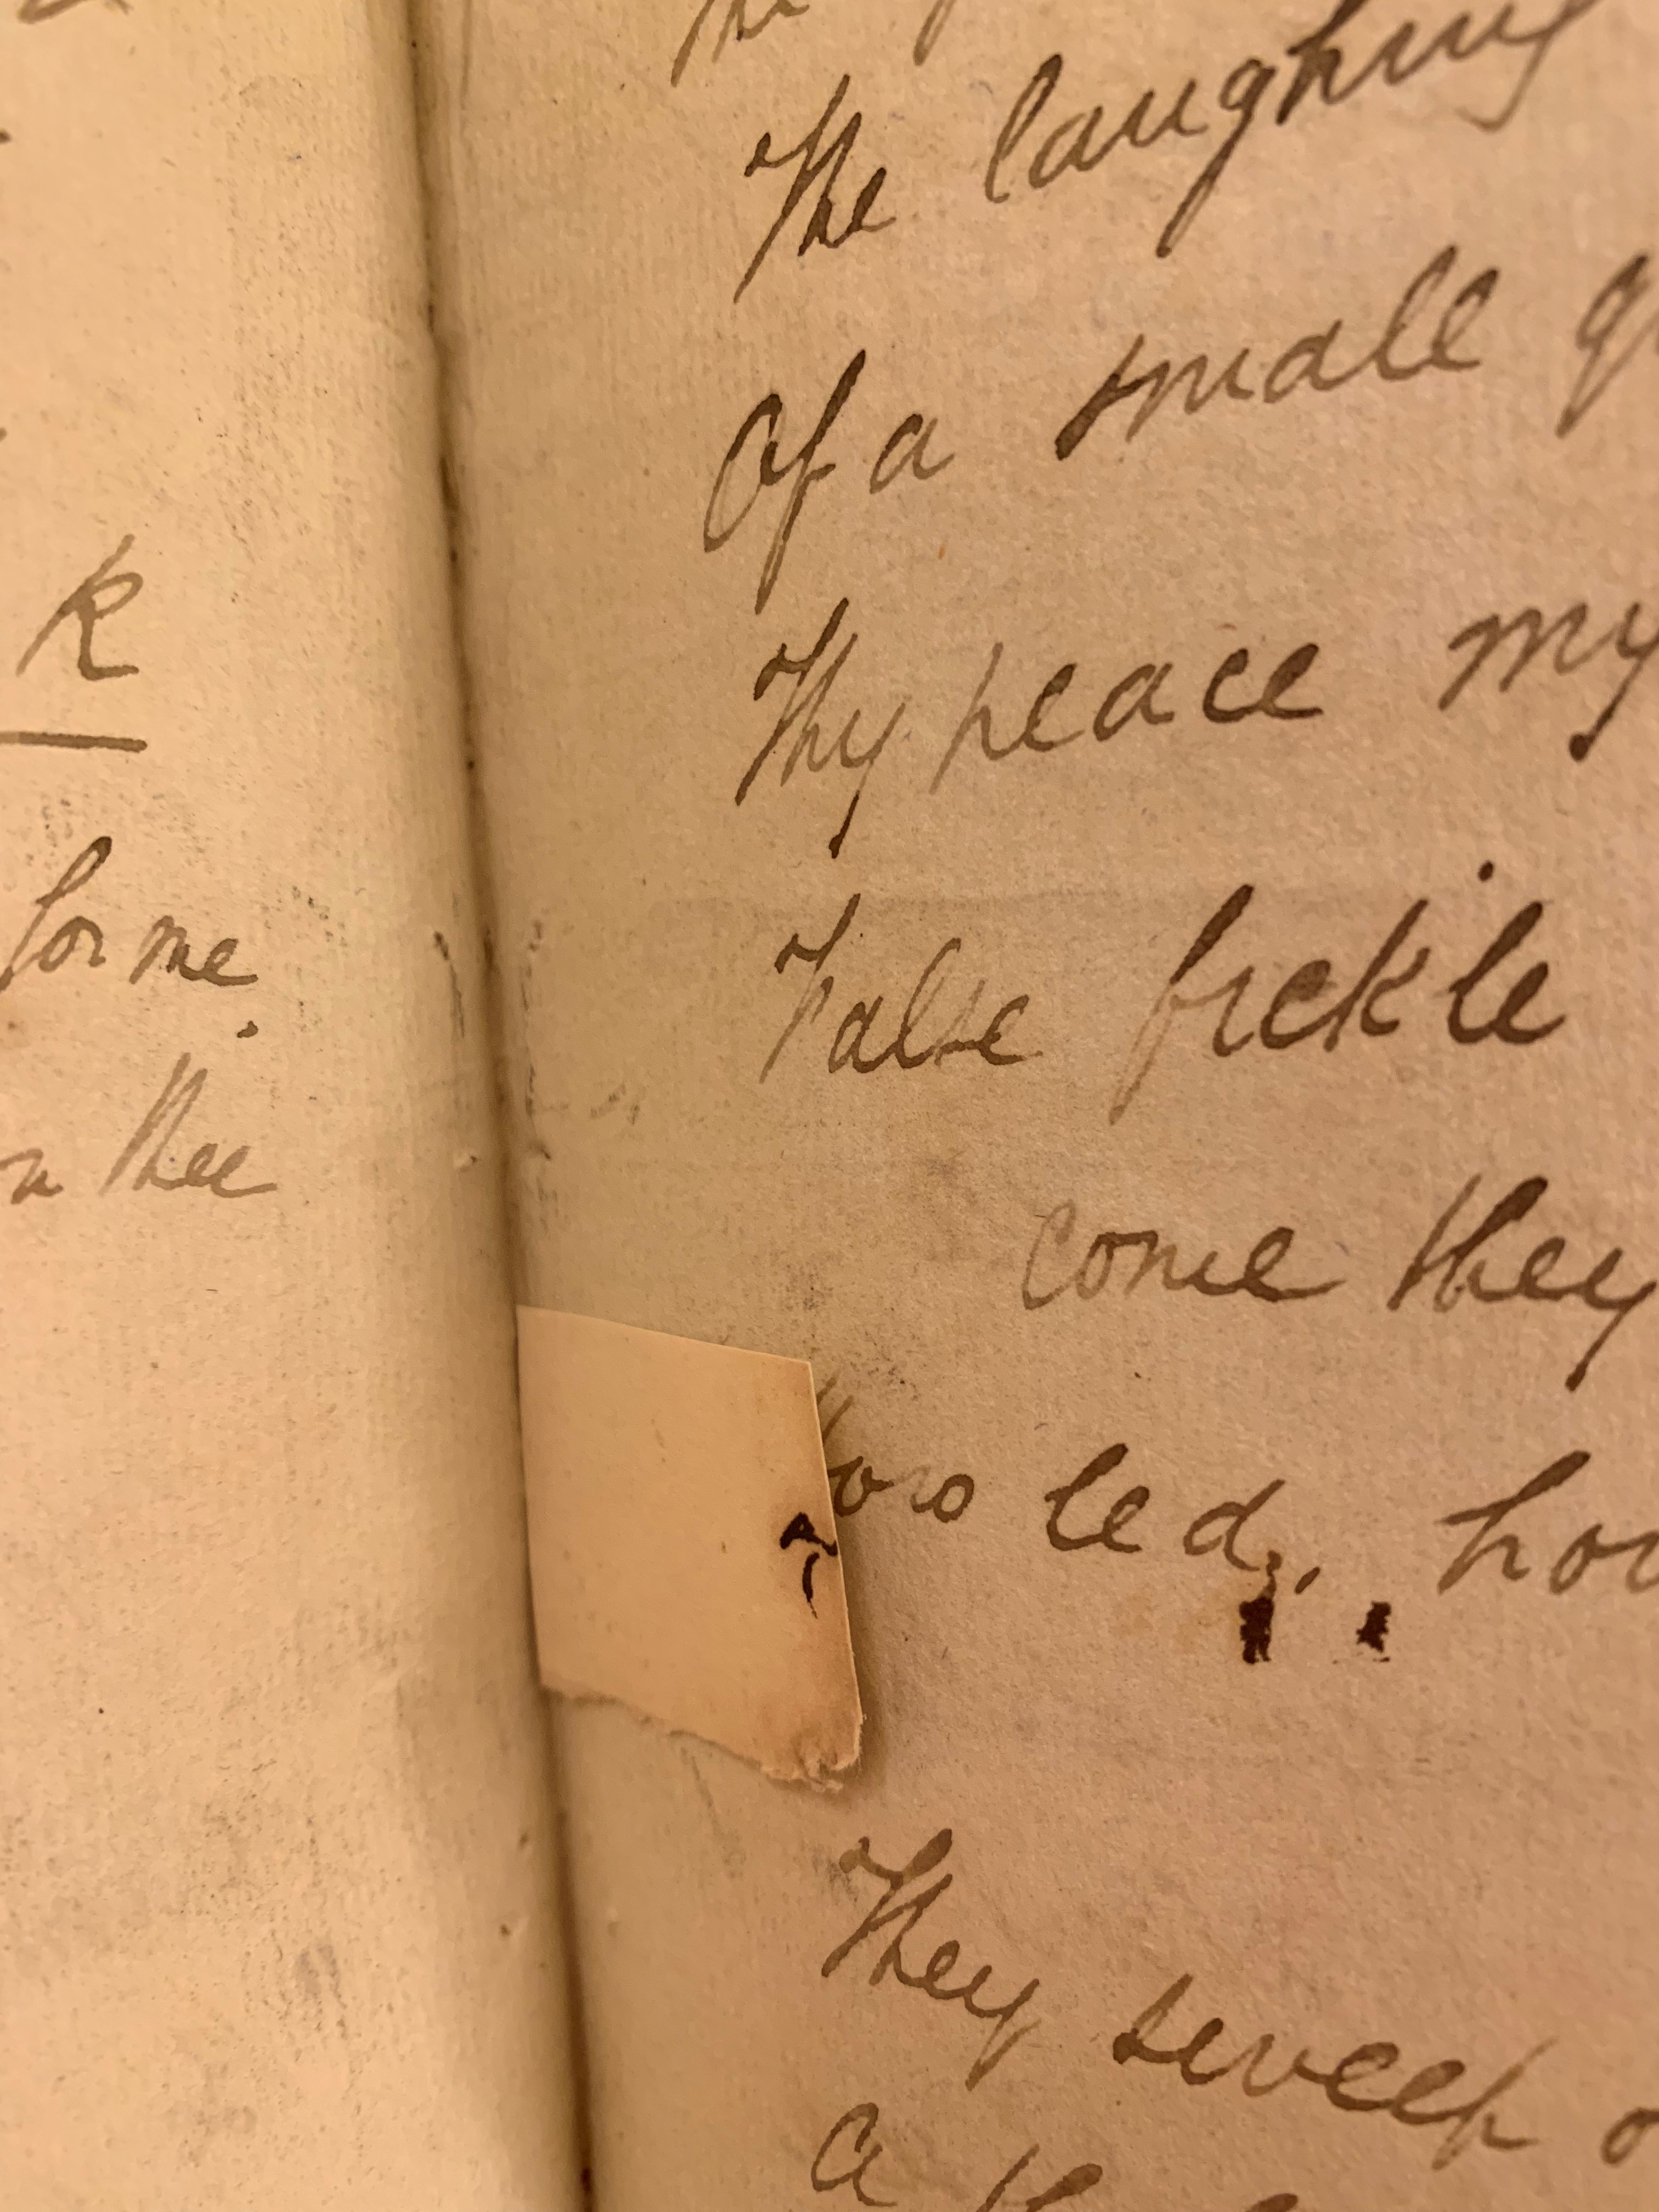 k
for me
thee
The
The laughing
Of a small
Thy peace my
False fickle
come they
led, how
They sweep
a